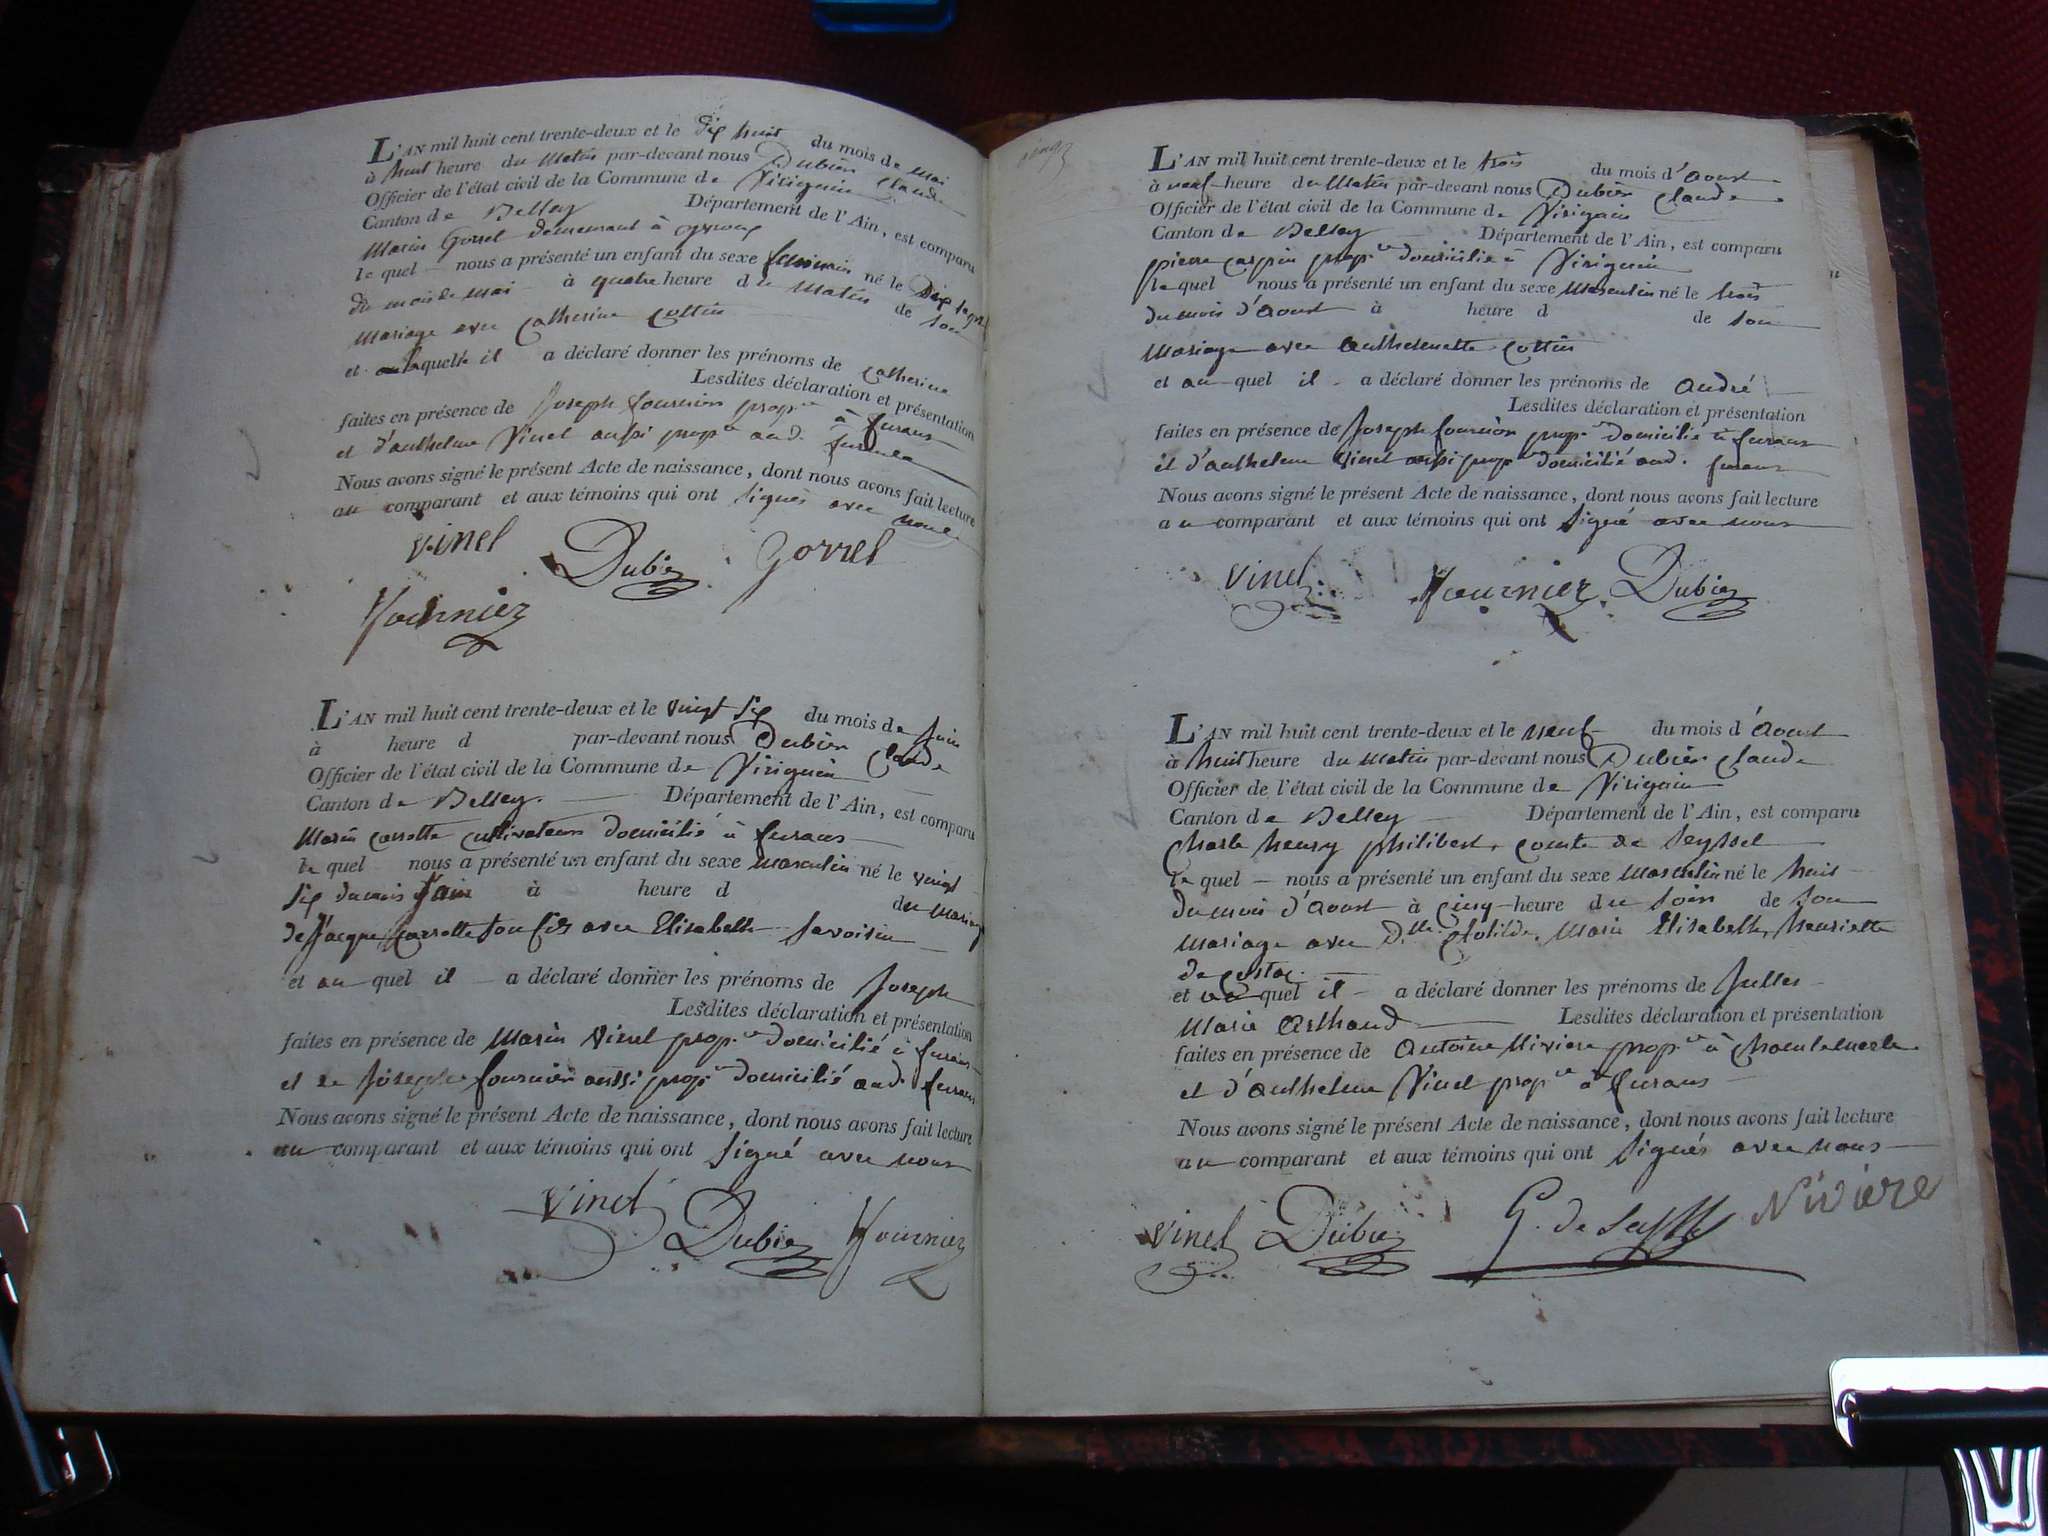 L'AN mil huit cent trente-deux et le dix huit du mois de mai
à huit heure du Matin par-devant nous Dubier Claude
Officier de l'état civil de la Commune de Virignin
Canton de Belley Département de l'Ain, est comparu
Marin Gorrel demeurant à
le quel nous a présenté un enfant du sexe feminin né le Dix sept
du mois de mai à quatre heure du Matin de son
Mariage avec Catherine Cottin
et a laquelle il a déclaré donner les prénoms de Catherine
Lesdites déclaration et présentation
faites en présence de Joseph fournier prop.re à furans
et d'anthelme Vinel aussi prop.re aud. furans
Nous avons signé le présent Acte de naissance, dont nous avons fait lecture
au comparant et aux témoins qui ont signés avec nous
Vinel Dubier Gorrel
Fournier
L'AN mil huit cent trente-deux et le vingt six du mois de Juin
à heure d par-devant nous Dubier Claude
Officier de l'état civil de la Commune de Virignin
Canton de Belley. Département de l'Ain, est comparu
Marin Carrotte cultivateur domicilié à furans
le quel nous a présenté un enfant du sexe Masculin né le vingt
six du mois Juin à heure d du Mariage
de Jacque Carrotte son fils avec Elisabeth Savoisin
et au quel il a déclaré donner les prénoms de Joseph
Lesdites déclaration et présentation
faites en présence de Marin Vinel prop.re domicilié à furans
et de Joseph fournier aussi prop.re domicilié aud. furans
Nous avons signé le présent Acte de naissance, dont nous avons fait lecture
au comparant et aux témoins qui ont signé avec nous
Vinel Dubier Fournier
L'AN mil huit cent trente-deux et le trois du mois d'Aoust
à neuf heure du Matin par-devant nous Dubier Claude
Officier de l'état civil de la Commune de Virignin
Canton de Belley Département de l'Ain, est comparu
pierre Carpin prop.re domicilié à Virignin
le quel nous a présenté un enfant du sexe Masculin né le trois
du mois d'Aoust à heure d de son
Mariage avec Anthelmette Cottin
et au quel il a déclaré donner les prénoms de André
Lesdites déclaration et présentation
faites en présence de Joseph fournier prop.re domicilié à furans
et d'anthelme Vinel aussi prop.re domicilié aud. furans
Nous avons signé le présent Acte de naissance, dont nous avons fait lecture
au comparant et aux témoins qui ont signé avec nous
Vinel Fournier Dubier
L'AN mil huit cent trente-deux et le neuf du mois d'Aoust
à huit heure du Matin par-devant nous Dubier Claude
Officier de l'état civil de la Commune de Virignin
Canton de Belley Département de l'Ain, est comparu
Charle henry philibert, comte de Seyssel
le quel nous a présenté un enfant du sexe Masculin né le huit
du mois d'Aoust à Cinq heure du soir de son
Mariage avec D.lle Clotilde, Marie Elisabeth, henriette
de
et au quel il a déclaré donner les prénoms de Julles
Marie Arthaud Lesdites déclaration et présentation
faites en présence de Antoine Niviere prop.re à
et d'Anthelme Vinel prop.re à furans
Nous avons signé le présent Acte de naissance, dont nous avons fait lecture
au comparant et aux témoins qui ont signés avec nous
Vinel Dubier de Niviere